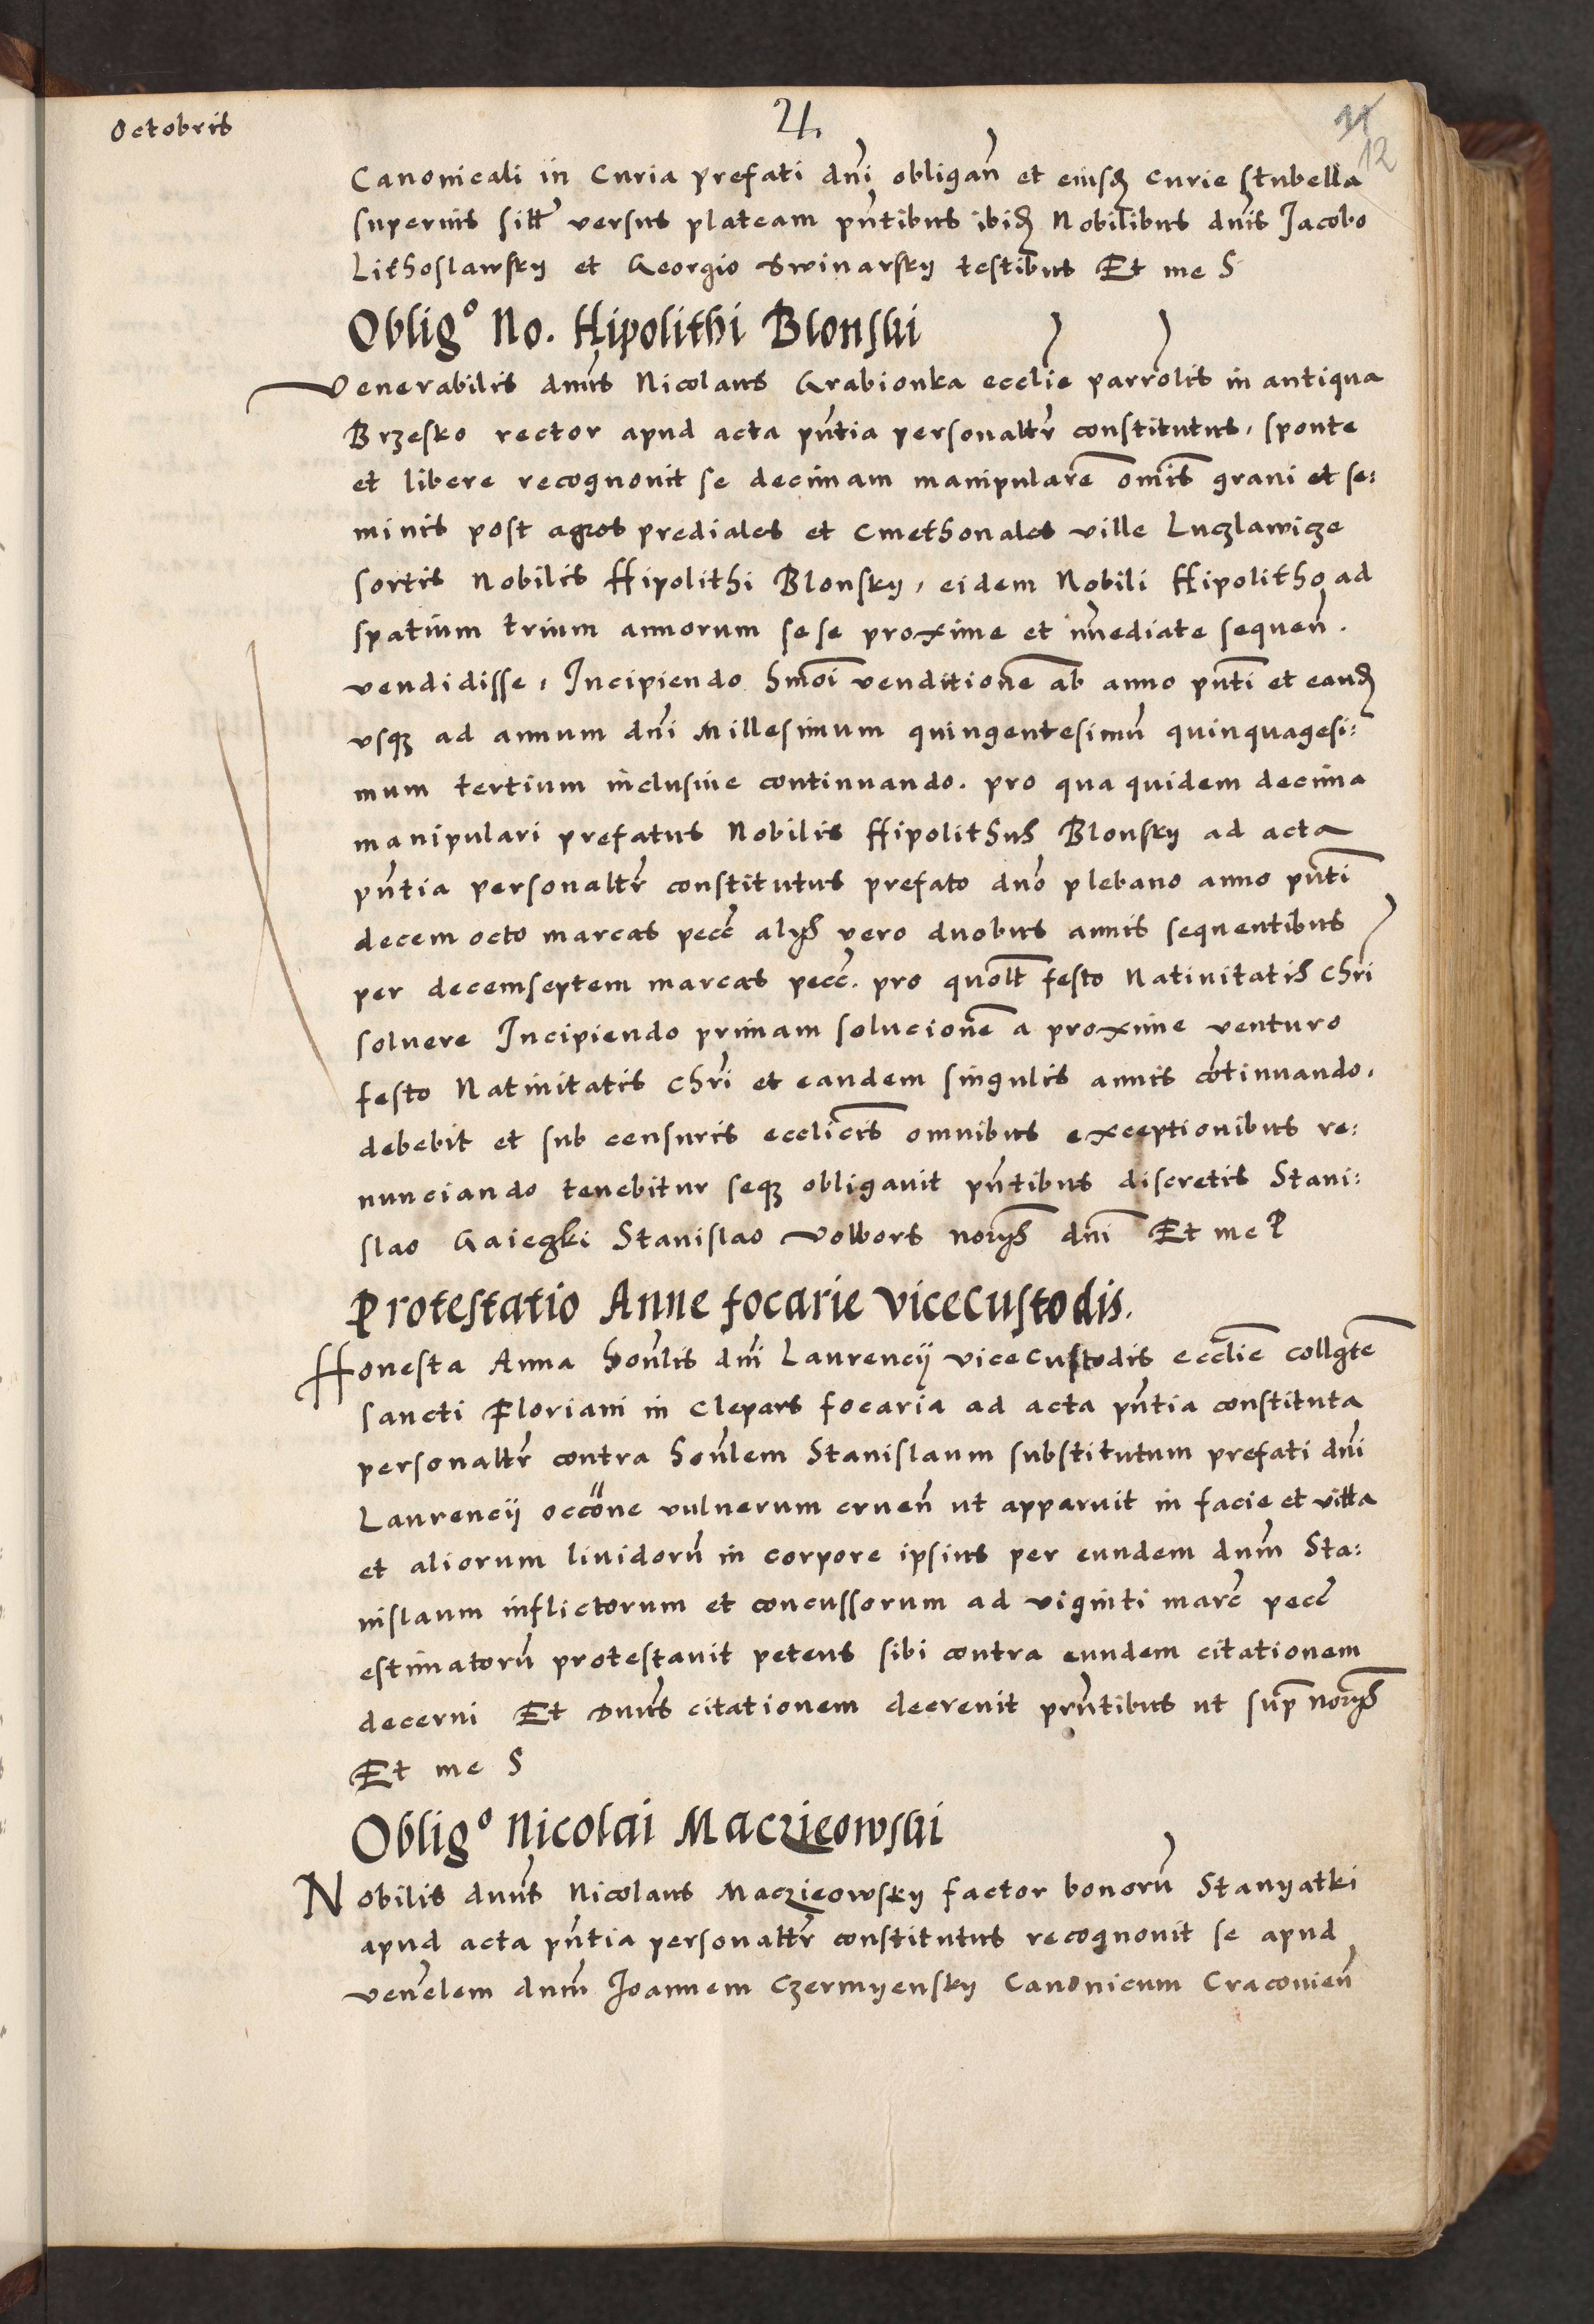 Octobris
21.
12
Canonicali in Curia prefati dñi obligañ et eiusd curie stubella
superius sitt versus plateam pñtibus ibid Nobilibus dñis Jacobo
Lithoslawsky et Georgio Swinarsky testibus Et me S
Oblig° No. Hipolithi Blonski
Venerabilis dnus Nicolaus Grabionka ecclie parrolis in antiqua
Brzesko rector apud acta pñtia personaltr constitutus, sponte
et libere recognouit se decimam manipularē omīs grani et se:
minis post agros prediales et Cmethonales ville Luczlawicze
sortis Nobilis Hipolithi Blonsky, eidem Nobili Hipolitho ad
spatium trium annorum sese proxime et īmediate sequeñ.
vendidisse, Incipiendo hmōi venditionē ab anno pñti et eand
usq ad annum dñi Millesimum quingentesimū quinquagesi:
mum tertium inclusiue continuando. pro qua quidem decima
manipulari prefatus Nobilis Hipolithus Blonsky ad acta
pñtia personaltr constitutus prefato dño plebano anno pñti
decem octo marcas pecē alys vero duobus annis sequentibus
per decemseptem marcas pecē. pro quolt festo Natiuitatis Chri
soluere Incipiendo primam solucionē a proxime venturo
festo Natiuitatis Chri et eandem singulis annis cōtinuando,
debebit et sub censuris ecclicis omnibus exceptionibus re:
nunciando tenebitur seq obligauit pñtibus discretis Stani:
slao Gaiegki Stanislao Wolbors norys dñi Et me P
Protestatio Anne focarie ViceCustodis.
Honesta Anna honlis dñi Laurencij viceCustodis ecclie collgtē
sancti Floriani in Clepars focaria ad acta pñtia constituta
personaltr contra honlem Stanislaum substitutum prefati dñi
Laurencij occōne vulnerum crueñ ut apparuit in facie et vitta
et aliorum liuidorū in corpore ipsius per eundem dnm Sta:
nislaum inflictorum et concussorum ad viginti marc pecē
estimatorū protestauit petens sibi contra eundem citationem
decerni Et Dnus citationem decreuit prñtibus ut sup norys
Et me S
Oblig° Nicolai Maczieowski
Nobilis dnus Nicolaus Maczieowsky factor bonorū Stanyatki
apud acta pñtia personaltr constitutus recognouit se apud
venelem dnm Joannem Czermyensky Canonicum Cracouieñ